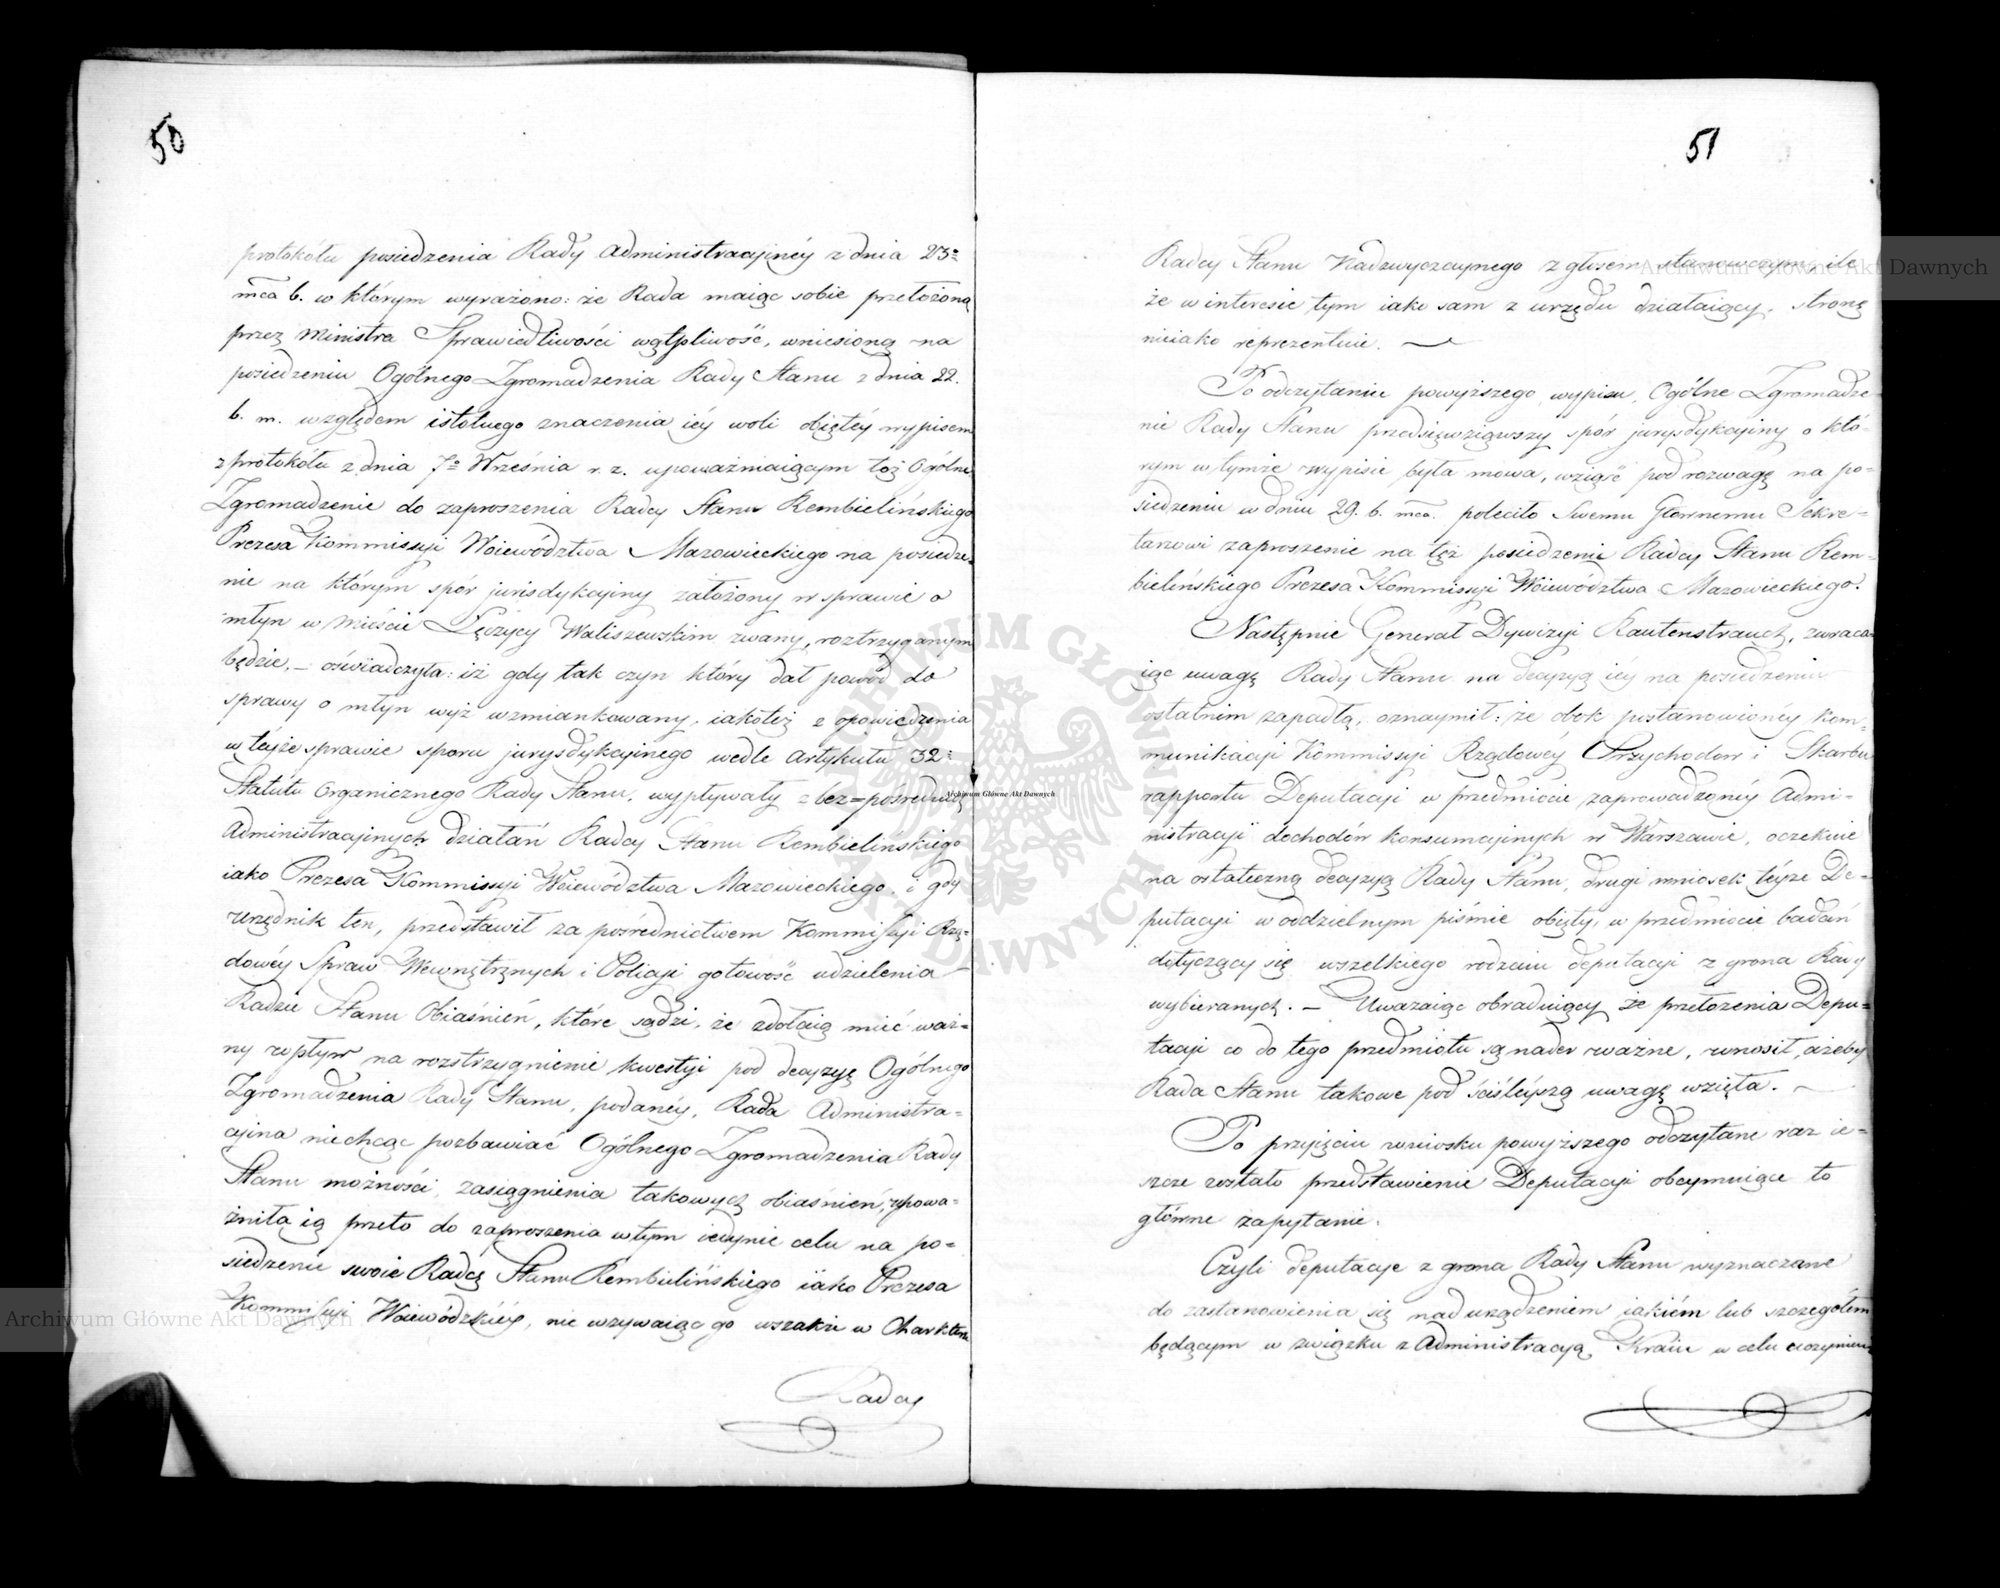 50
protokółu posiedzenia Rady Administracyinéy z dnia 23º
mca b. w którym wyrażono: że Rada maiąc sobie przełożoną
przez Ministra Sprawiedliwości wątpliwość, wniesioną na
posiedzeniu Ogólnego Zgromadzenia Rady Stanu z dnia 22.
b. m. względem istotnego znaczenia iéy woli obiętéy wypisem
z protokółu z dnia 7º Września r. z. upoważniaiącym toż Ogólne
Zgromadzenie do zaproszenia Radcy Stanu Rembielińskiego
Prezesa Kommissyi Woiewództwa Mazowieckiego na posiedze-
nie na którym spór jurisdykcyiny założony w sprawie o
młyn w Mieście Łęczycy Waliszewskim zwany, roztrzyganym
będzie. – oświadczyła: iż gdy tak czyn który dał powód do
sprawy o młyn wyż wzmiankowany, iakoteż z opowiedzenia
w téyże sprawie sporu jurysdykcyinego wedle Artykułu 32º
Statutu Organicznego Rady Stanu, wypływały z bez=pośrednich
Administracyinych działań Radcy Stanu Rembielińskiego
iako Prezesa Kommissyi Woiewództwa Mazowieckiego, i gdy
urzędnik ten, przedstawił za pośrednictwem Kommissyi Rzą=
dowéy Spraw Wewnętrznych i Policyi gotowość udzielenia
Radzie Stanu Obiaśnień, które sądzi, że zdołaią mieć waż=
ny wpływ na rozstrzygnienie kwestyi pod decyzyę Ogólnego
Zgromadzenia Rady Stanu, podanéy, Rada Administra-
cyina niechcąc pozbawiać Ogólnego Zgromadzenia Rady
Stanu możności, zasiągnienia takowych obiaśnień, upowa-
żniła ią przeto do zaproszenia w tym iedynie celu na po-
siedzenie swoie Radcę Stanu Rembielińskiego iako Prezesa
Kommissyi Woiewódzkiéy, nie wzywaiąc go wszakże w Charkterze
Radcy
51
Radcy Stanu Nadzwyczaynego z głosem stanowczym, ile
że w interesie tym iako sam z urzędu działaiący, stronę
nieiako reprezentuie.
Po odczytaniu powyższego wypisu, Ogólne Zgromadze-
nie Rady Stanu przedsięwziąwszy spór jurysdykcyiny o któ-
rym w tymże wypisie była mowa, wziąść pod rozwagę na po=
siedzeniu w dniu 29. b. mca. poleciło Swemu Głównemu Sekre-
tarzowi zaproszenie na też posiedzenie Radcy Stanu Rem-
bielińskiego Prezesa Kommissyi Woiewództwa Mazowieckiego.
Następnie Generał Dywizyi Rautenstrauch, zwraca-
iąc uwagę Rady Stanu na decyzyą iéy na posiedzeniu
ostatnim zapadłą, oznaymił: że obok postanowionéy kom-
munikacyi Kommissyi Rządowéy Przychodów i Skarbu
rapportu Deputacyi w przedmiocie zaprowadzonéy Admi-
nistracyi dochodów konsumcyinych w Warszawie, oczekuie
na ostateczną decyzyą Rady Stanu, drugi wniosek téyże De-
putacyi w oddzielnym piśmie obięty, w przedmiocie badań
dotyczący się wszelkiego rodzaiu deputacyi z grona Rady
wybieranych. – Uważaiąc obraduiący że przełożenia Depu=
tacyi co do tego przedmiotu są nader ważne, wnosił, ażeby
Rada Stanu takowe pod ściśleyszą uwagę wzięła. –
Po przyięciu wniosku powyższego odczytane raz ie=
szcze zostało przedstawienie Deputacyi obeymuiące to
główne zapytanie.
Czyli deputacye z grona Rady Stanu wyznaczane
do zastanowienia się nad urządzeniem iakiém lub szczegółem
będącym w związku z Administracyą Kraiu w celu uczynienia
Archiwum Główne Akt Dawnych
Archiwum Główne Akt Dawnych
Archiwum Główne Akt Dawnych
ARCHIWUM GŁÓWNE AKT DAWNYCH